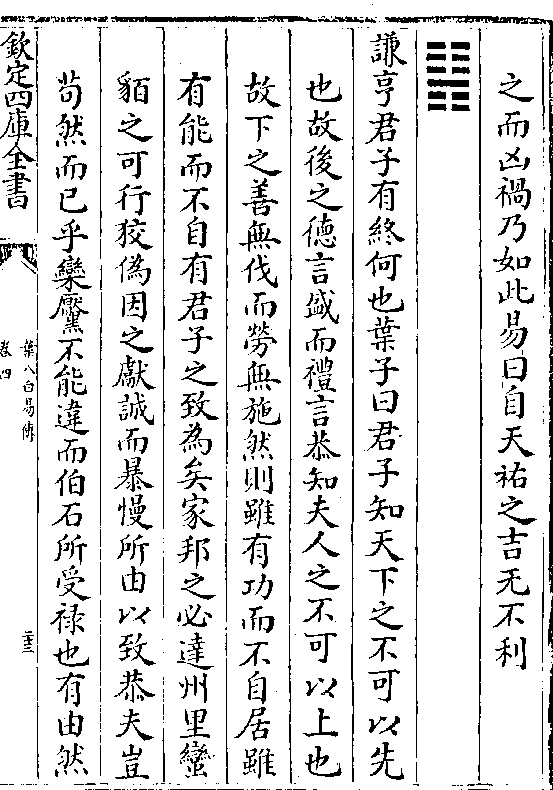 之而凶禍乃如此易曰自天祐之吉无不利
䷎
謙亨君子有終何也葉子曰君子知天下之不可以先
也故後之德言盛而禮言恭知夫人之不可以上也
故下之善無伐而勞無施然則雖有功而不自居雖
有能而不自有君子之致為矣家邦之必達州里蠻
貊之可行狡偽因之獻誠而暴慢所由以致恭夫豈
苟然而已乎欒黶不能違而伯石所受祿也有由然
欽定四庫全書
葉八白易傳
卷四
二十三